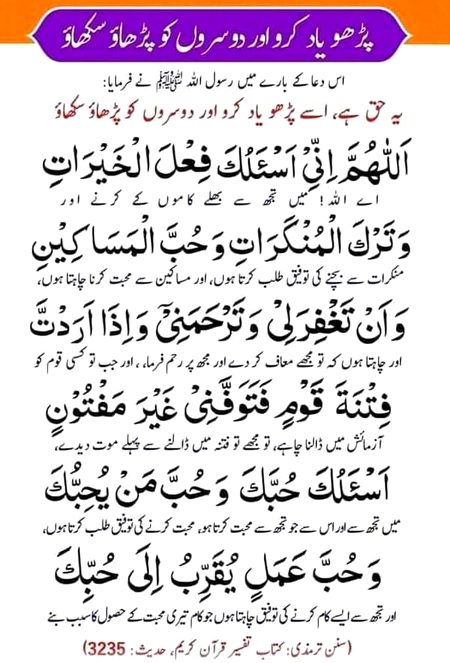 پڑھو یاد کرو اور دوسروں کو پڑھاؤ سکھاؤ
اس دعا کے بارے میں رسول اللہ ﷺ نے فرمایا:
یہ حق ہے، اسے پڑھو یاد کرو اور دوسروں کو پڑھاؤ سکھاؤ
اَللّٰهُمَّ اِنِّىْ اَسْئَلُكَ فِعْلَ الْخَيْرَاتِ
اے اللہ! میں تجھ سے بھلے کاموں کے کرنے اور
وَتَرْكَ الْمُنْكَرَاتِ وَحُبَّ الْمَسَاكِيْنِ
منکرات سے بچنے کی توفیق طلب کرتا ہوں، اور مساکین سے محبت کرنا چاہتا ہوں،
وَاَنْ تَغْفِرَلِىْ وَتَرْحَمَنِىْ وَاِذَا اَرَدْتَّ
اور چاہتا ہوں کہ تو مجھے معاف کر دے اور مجھ پر رحم فرما، ، اور جب تو کسی قوم کو
فِتْنَةَ قَوْمٍ فَتَوَفَّنِىْ غَيْرَ مَفْتُوْنٍ
آزمائش میں ڈالنا چاہے، تو مجھے تو فتنہ میں ڈالنے سے پہلے موت دیدے،
اَسْئَلُكَ حُبَّكَ وَحُبَّ مَنْ يُحِبُّكَ
میں تجھ سے اور اس سے جو تجھ سے محبت کرتا ہو، محبت کرنے کی توفیق طلب کرتا ہوں،
وَحُبَّ عَمَلٍ يُقَرِّبُ اِلَى حُبِّكَ
اور تجھ سے ایسے کام کرنے کی توفیق چاہتا ہوں جو کام تیری محبت کے حصول کا سبب بنے
(سنن ترمذی: کتاب تفسیر قرآن کریم، حدیث: 3235)